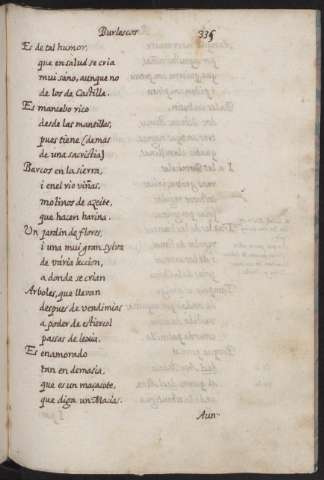 Burlescos 335
Es de tal humor,
que en salud se cria
mui sano, aunque no
de los de Castilla.
Es mancebo rico
desde las mantillas,
pues tiene (demas
de una sacristia)
Barcos en la sierra,
i en el rio viñas,
molinos de azeite,
que hacen harina.
Un jardin de flores,
i una mui gran sylva
de varia leccion,
a donde se crian
Arboles, que llevan
despues de vendimias
a poder de estiercol
passas de lexia.
Es enamorado
tan en demasia,
que es un maçacote,
que diga un Macias.
Aun